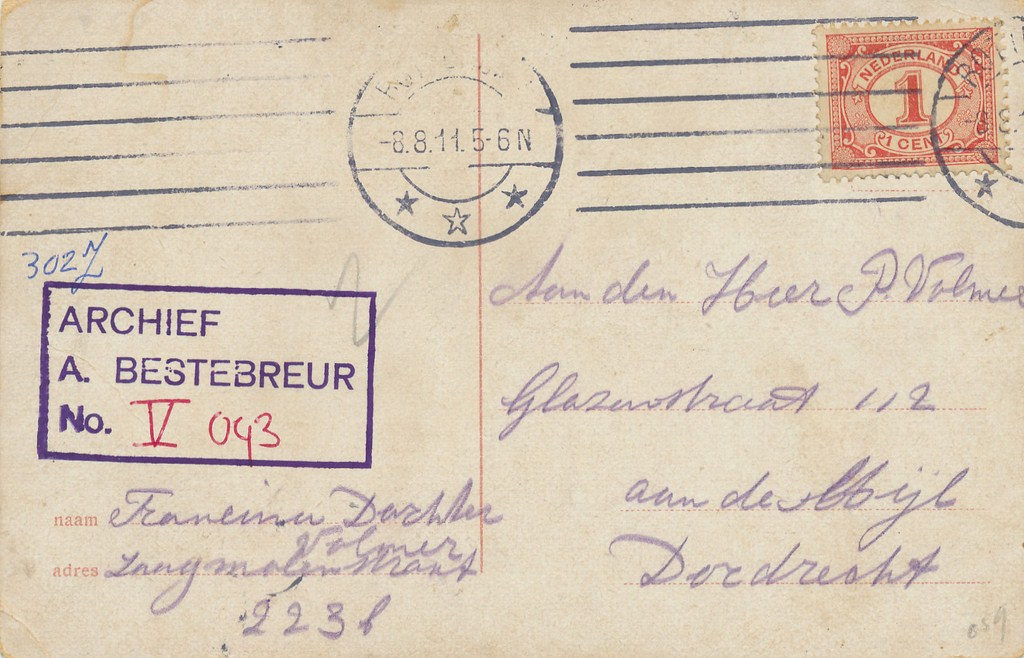 -8.8.11.5-6N
NEDERLAND
1
1 CENT
302
ARCHIEF
A. BESTEBREUR
No. V 093
Aan den Heer P. Volmer
Glazenstraat 112
aan de Mijl
Dordrecht
naam Francina Dochter
Volmer
adres Zaagmolenstraat
223b